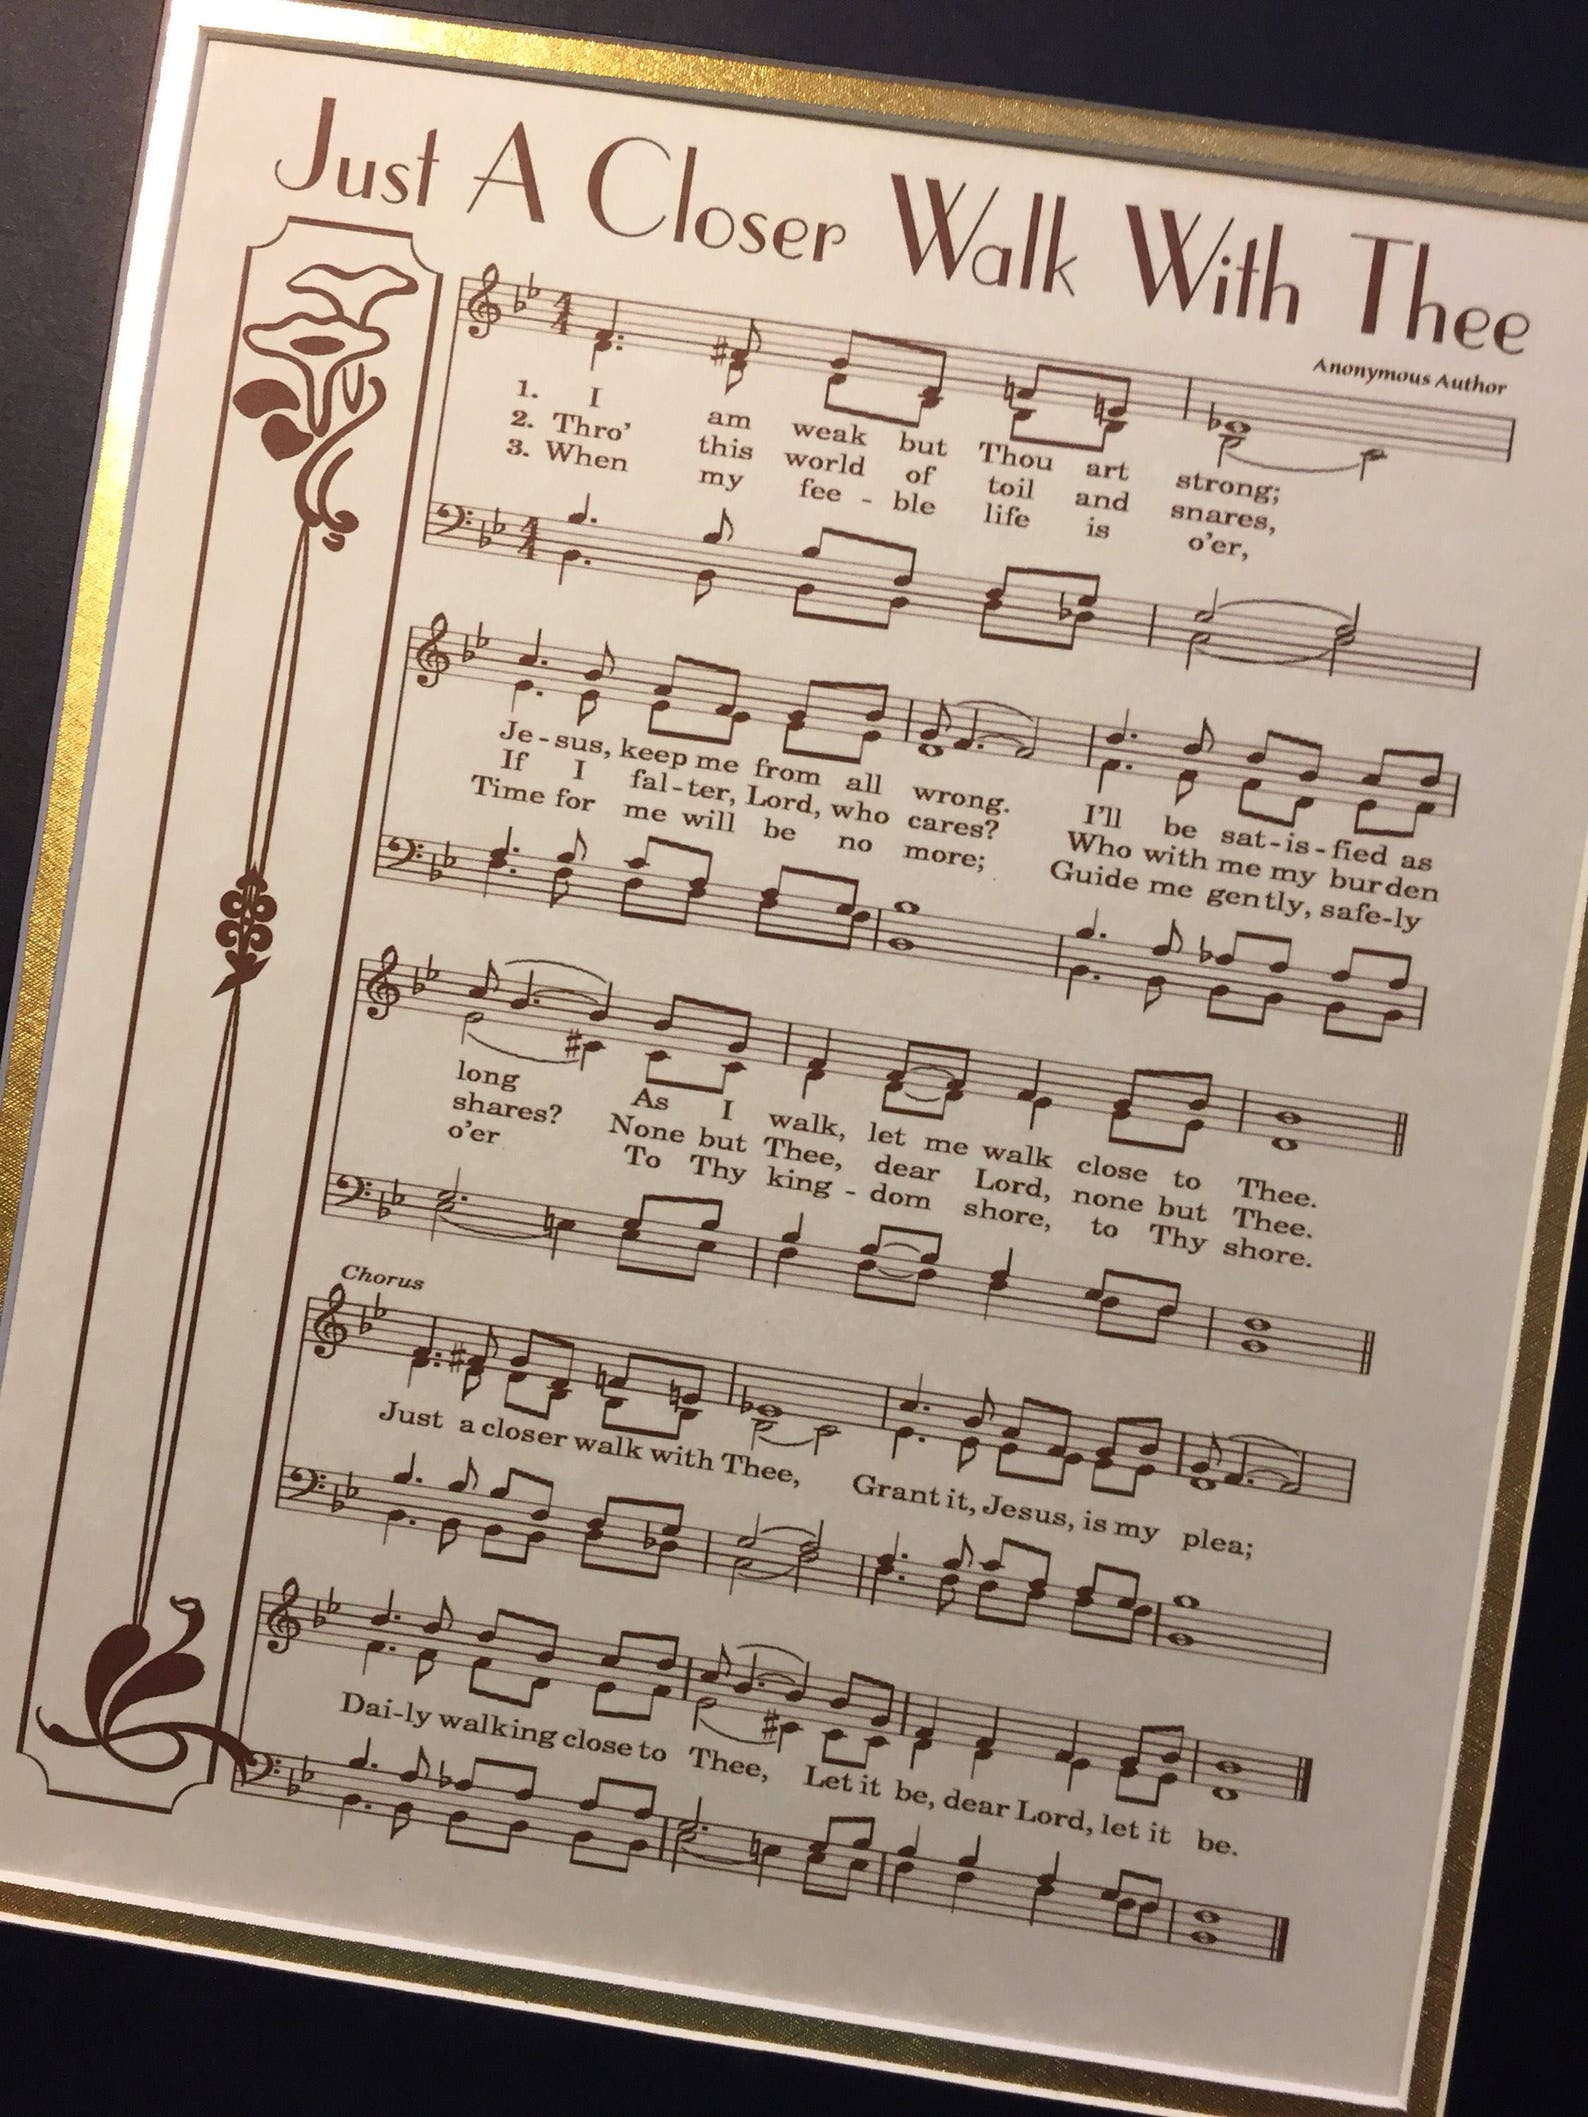 Just A Closer Walk With Thee
Anonymous Author
1. I am weak but Thou art strong;
2. Thro' this world of toil and snares,
3. When my fee - ble life is o'er,
Je - sus, keep me from all wrong. I'll be sat - is - fied as
If I fal - ter, Lord, who cares? Who with me my burden
Time for me will be no more; Guide me gently, safe-ly
long As I walk, let me walk close to Thee.
shares? None but Thee, dear Lord, none but Thee.
o'er To Thy king - dom shore, to Thy shore.
Chorus
Just a closer walk with Thee, Grant it, Jesus, is my plea;
Dai-ly walking close to Thee, Let it be, dear Lord, let it be.